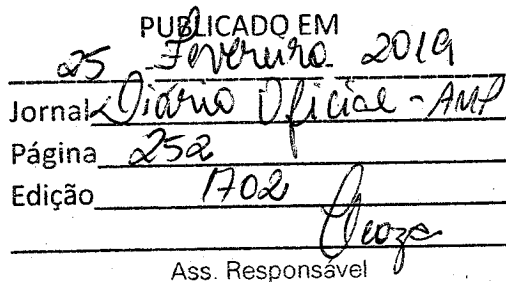 PUBLICADO EM
25 Fevereiro 2019
Jornal Diário Oficial - AMP
Página 252
Edição 1702
Ass. Responsável